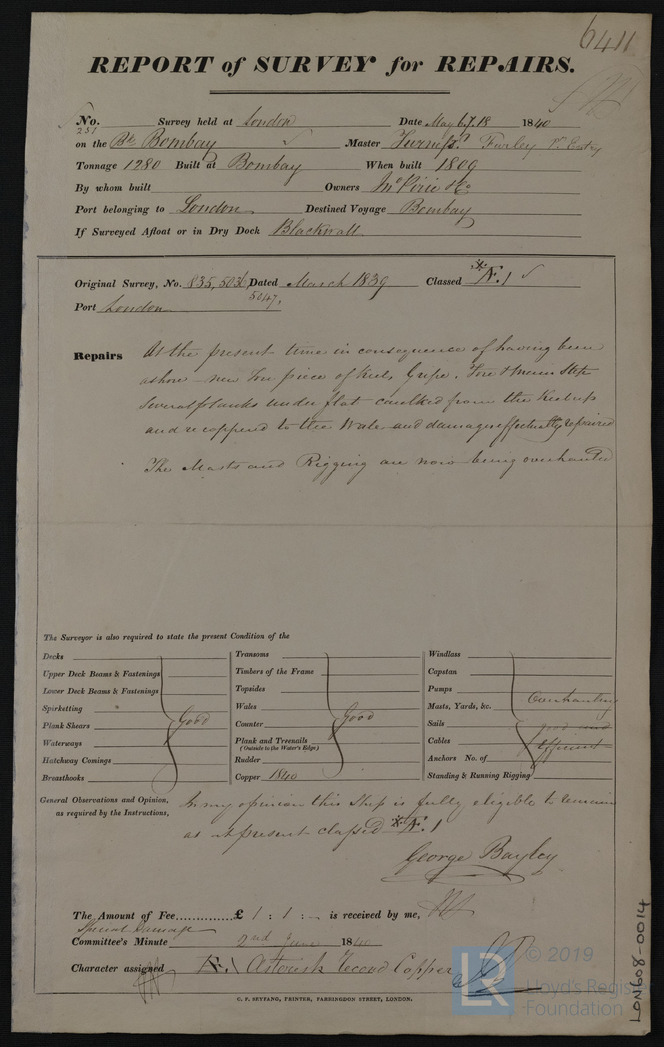 6411
REPORT of SURVEY for REPAIRS.
No. 251 Survey held at London Date May 6, 7, 18 1840
on the Bk Bombay Master Furniss Furley
Tonnage 1280 Built at Bombay When built 1809
By whom built Owners Jno Pirie & Co
Port belonging to London Destined Voyage Bombay
If Surveyed Afloat or in Dry Dock Blackwall
Original Survey, No. 835, 503 Dated March 1839 Classed *Æ.1
5047,
Port London
Repairs At the present time in consequence of having been
ashore - new Fore piece of Keel, Gripe, Fore & main Steps
Several planks under flat caulked from the Keel up
and recoppered to the Wales and damages effectually repaired
The Masts and Rigging are now being overhauled
The Surveyor is also required to state the present Condition of the
Decks
Upper Deck Beams & Fastenings
Lower Deck Beams & Fastenings
Spirketting
Plank Shears
Waterways
Hatchway Comings
Breasthooks
Good
Transoms
Timbers of the Frame
Topsides
Wales
Counter
Plank and Treenails
(Outside to the Water's Edge)
Rudder
Copper 1840
Good
Windlass
Capstan
Pumps
Masts, Yards, &c.
Sails
Cables
Anchors No. of
Standing & Running Rigging
Overhauling
good and
efficient
General Observations and Opinion, In my opinion this Ship is fully eligible to remain
as required by the Instructions, as at present classed *Æ.1
George Bayley
The Amount of Fee............... £ 1 : 1 : - is received by me,
Special Damage
Committee's Minute 2nd June 1840
Character assigned Æ.1 Asterisk Record Copper
C. F. SEYFANG, PRINTER, FARRINGDON STREET, LONDON.
LON608-0014
LR
© 2019
Lloyd's Register
Foundation